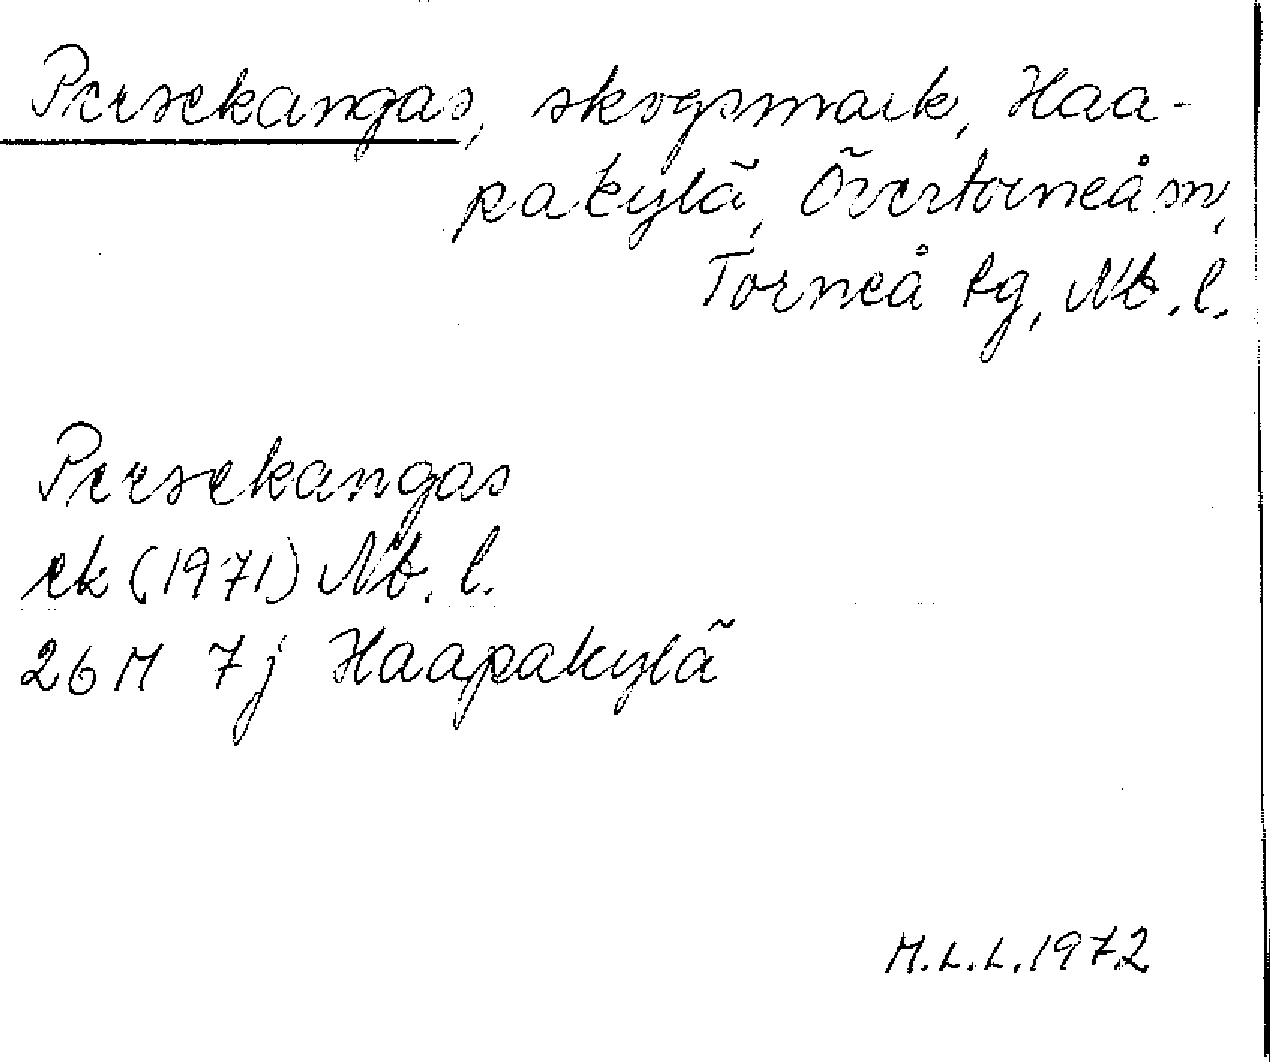 Persekangas, skogsmark, Haa-
pakylä, Övertorneå sn,
Torneå tg, Nb. l.
Persekangas
ek (1971) Nb. l.
26 M 7j Haapakylä
M.L.L. 1972